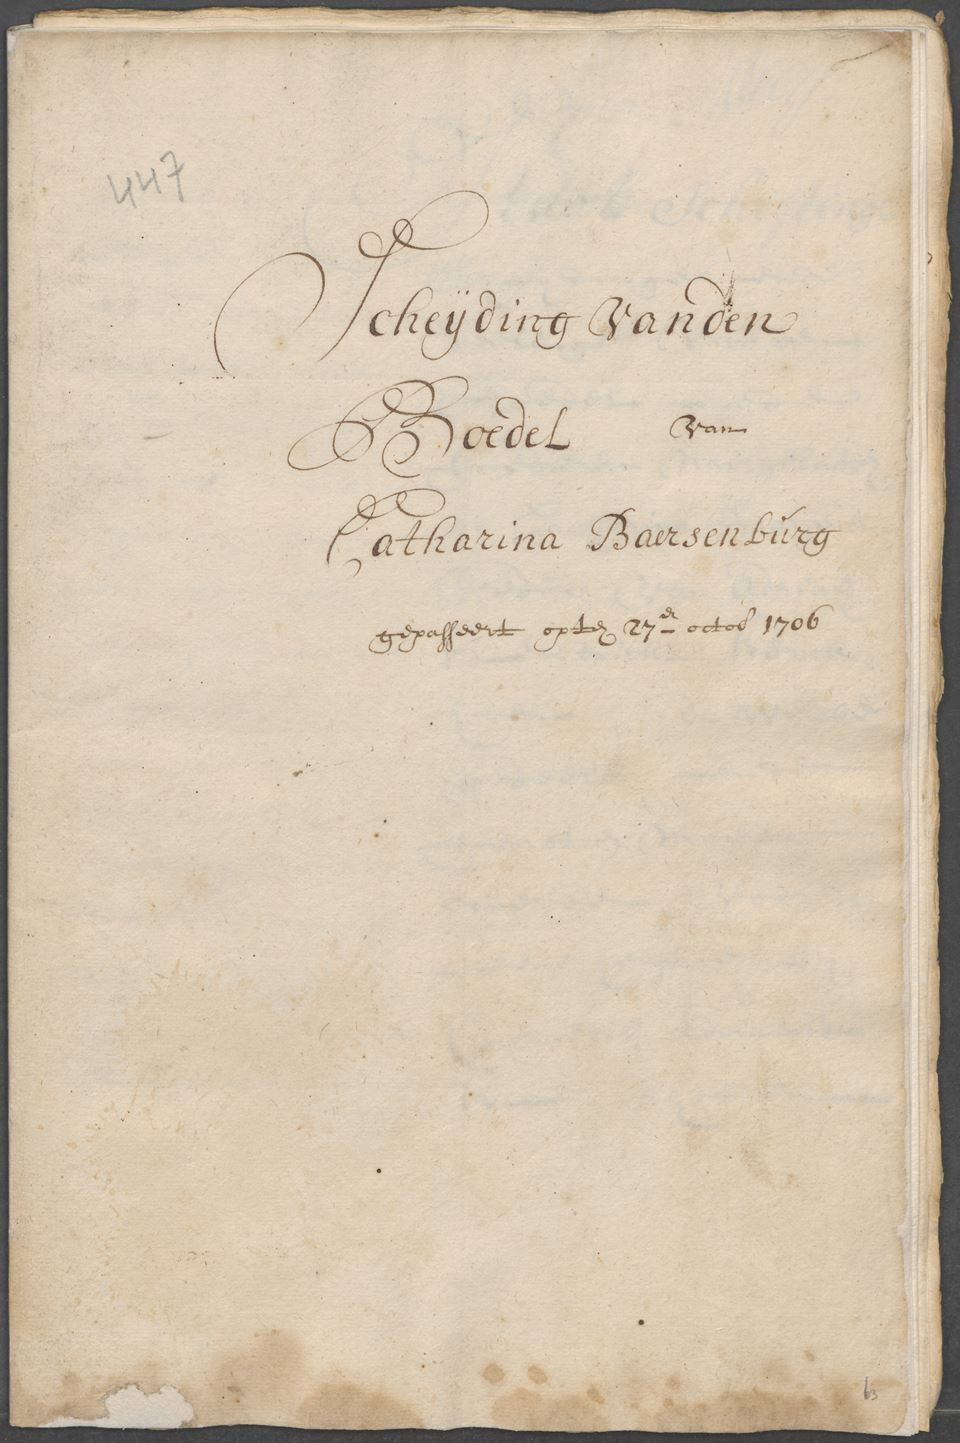 447
Scheÿding vanden
Boedel van
Catharina Baersenbŭrg
gepasseert opten 27e octob 1706